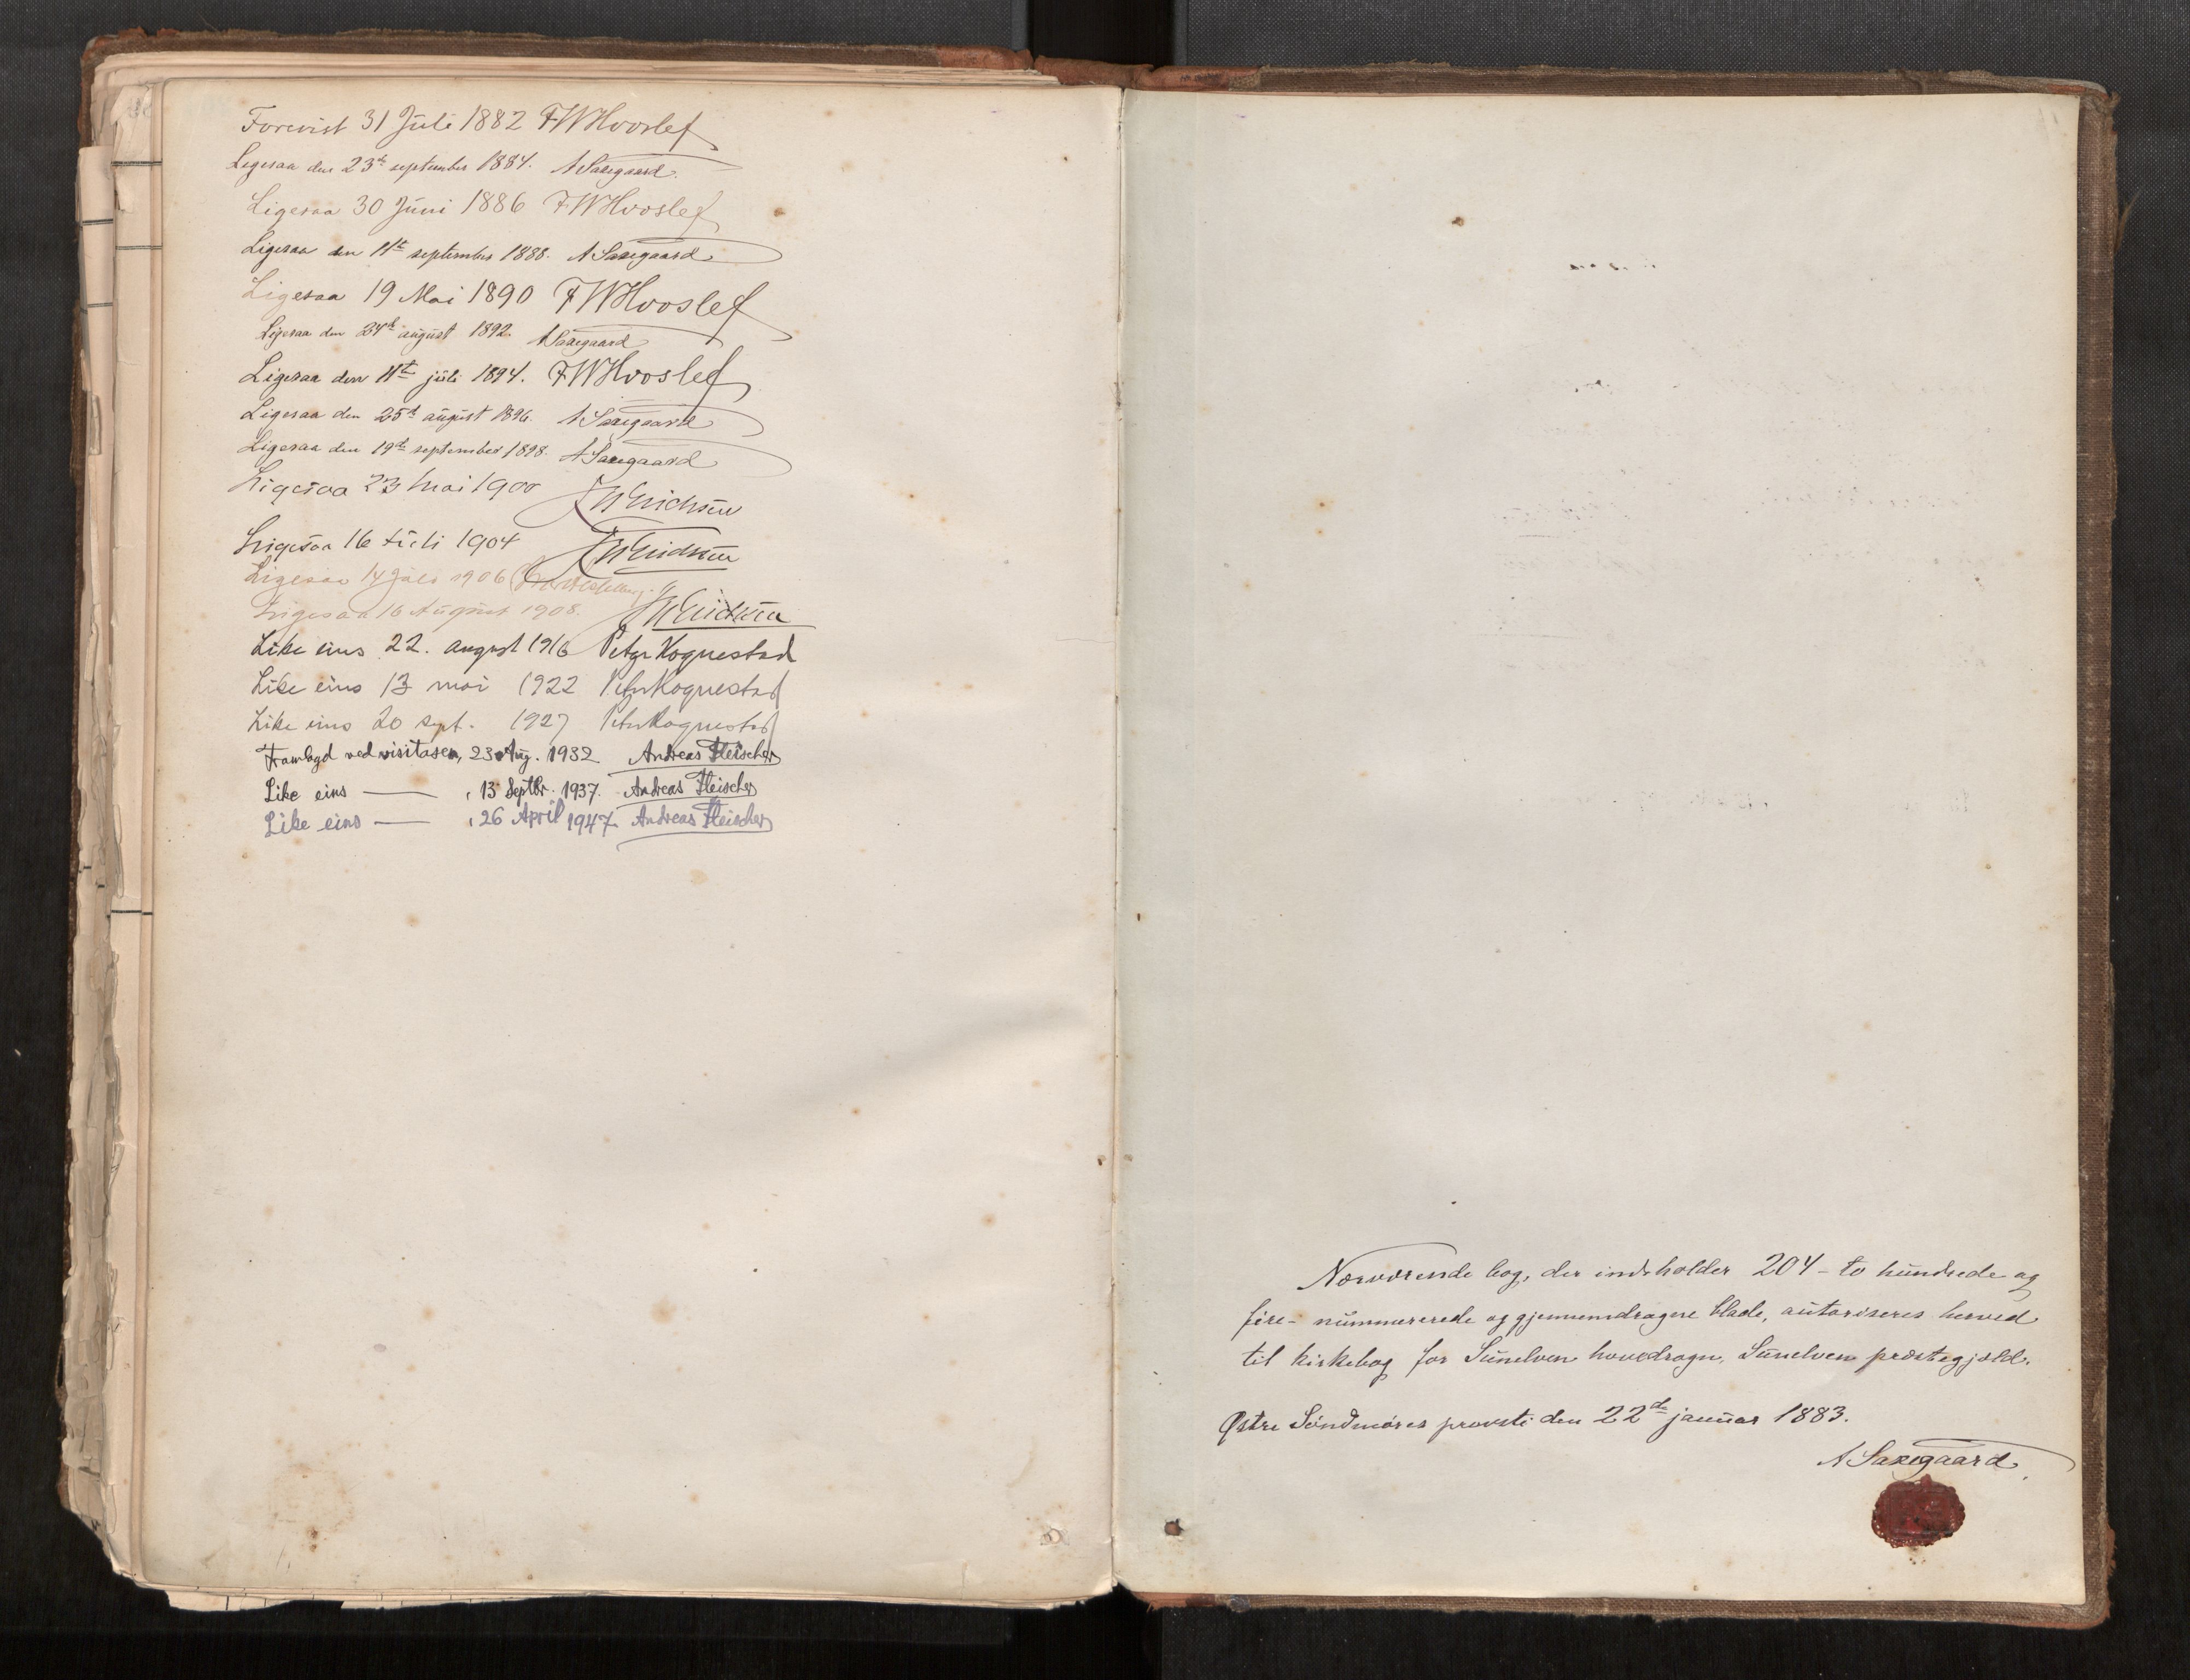 Forevist 31 Juli 1882 FWHvoslef
Ligesaa den 23de september 1884. ASaxegaard.
Ligesaa 30 Juni 1886 FWHvoslef
Ligesaa den 11te september 1888. ASaxegaard
Ligesaa 19 Mai 1890 FWHvoslef
Ligesaa den 24de august 1892. ASaxegaard
Ligesaa den 11te juli 1894. FWHvoslef
Ligesaa den 25de august 1896. ASaxegaard
Ligesaa den 19de september 1898. ASaxegaard
Ligesaa 23 Mai 1900
Ligesaa 16 Juli 1904
Ligesaa 14 Juli 1906
Ligesaa 16 August 1908.
Like eins 22. august 1916 Peter Hognestad
Like eins 13 mai 1922 Peter Hognestad
Like eins 20 sept. 1927 Peter Hognestad
Framlagd ved visitasen, 23 Aug. 1932 Andreas Fleischer
Like eins — , 13 Septbr. 1937. Andreas Fleischer
Like eins — , 26 April 1947 Andreas Fleischer
Nærværende bog, der indeholder 204 - to hundrede og
fire - nummererede og gjennemdragne blade, autoriseres herved
til kirkebog for Sunelven hovedsogn, Sunelven præstegjæld.
Østre Søndmøres provsti den 22de januar 1883.
ASaxegaard